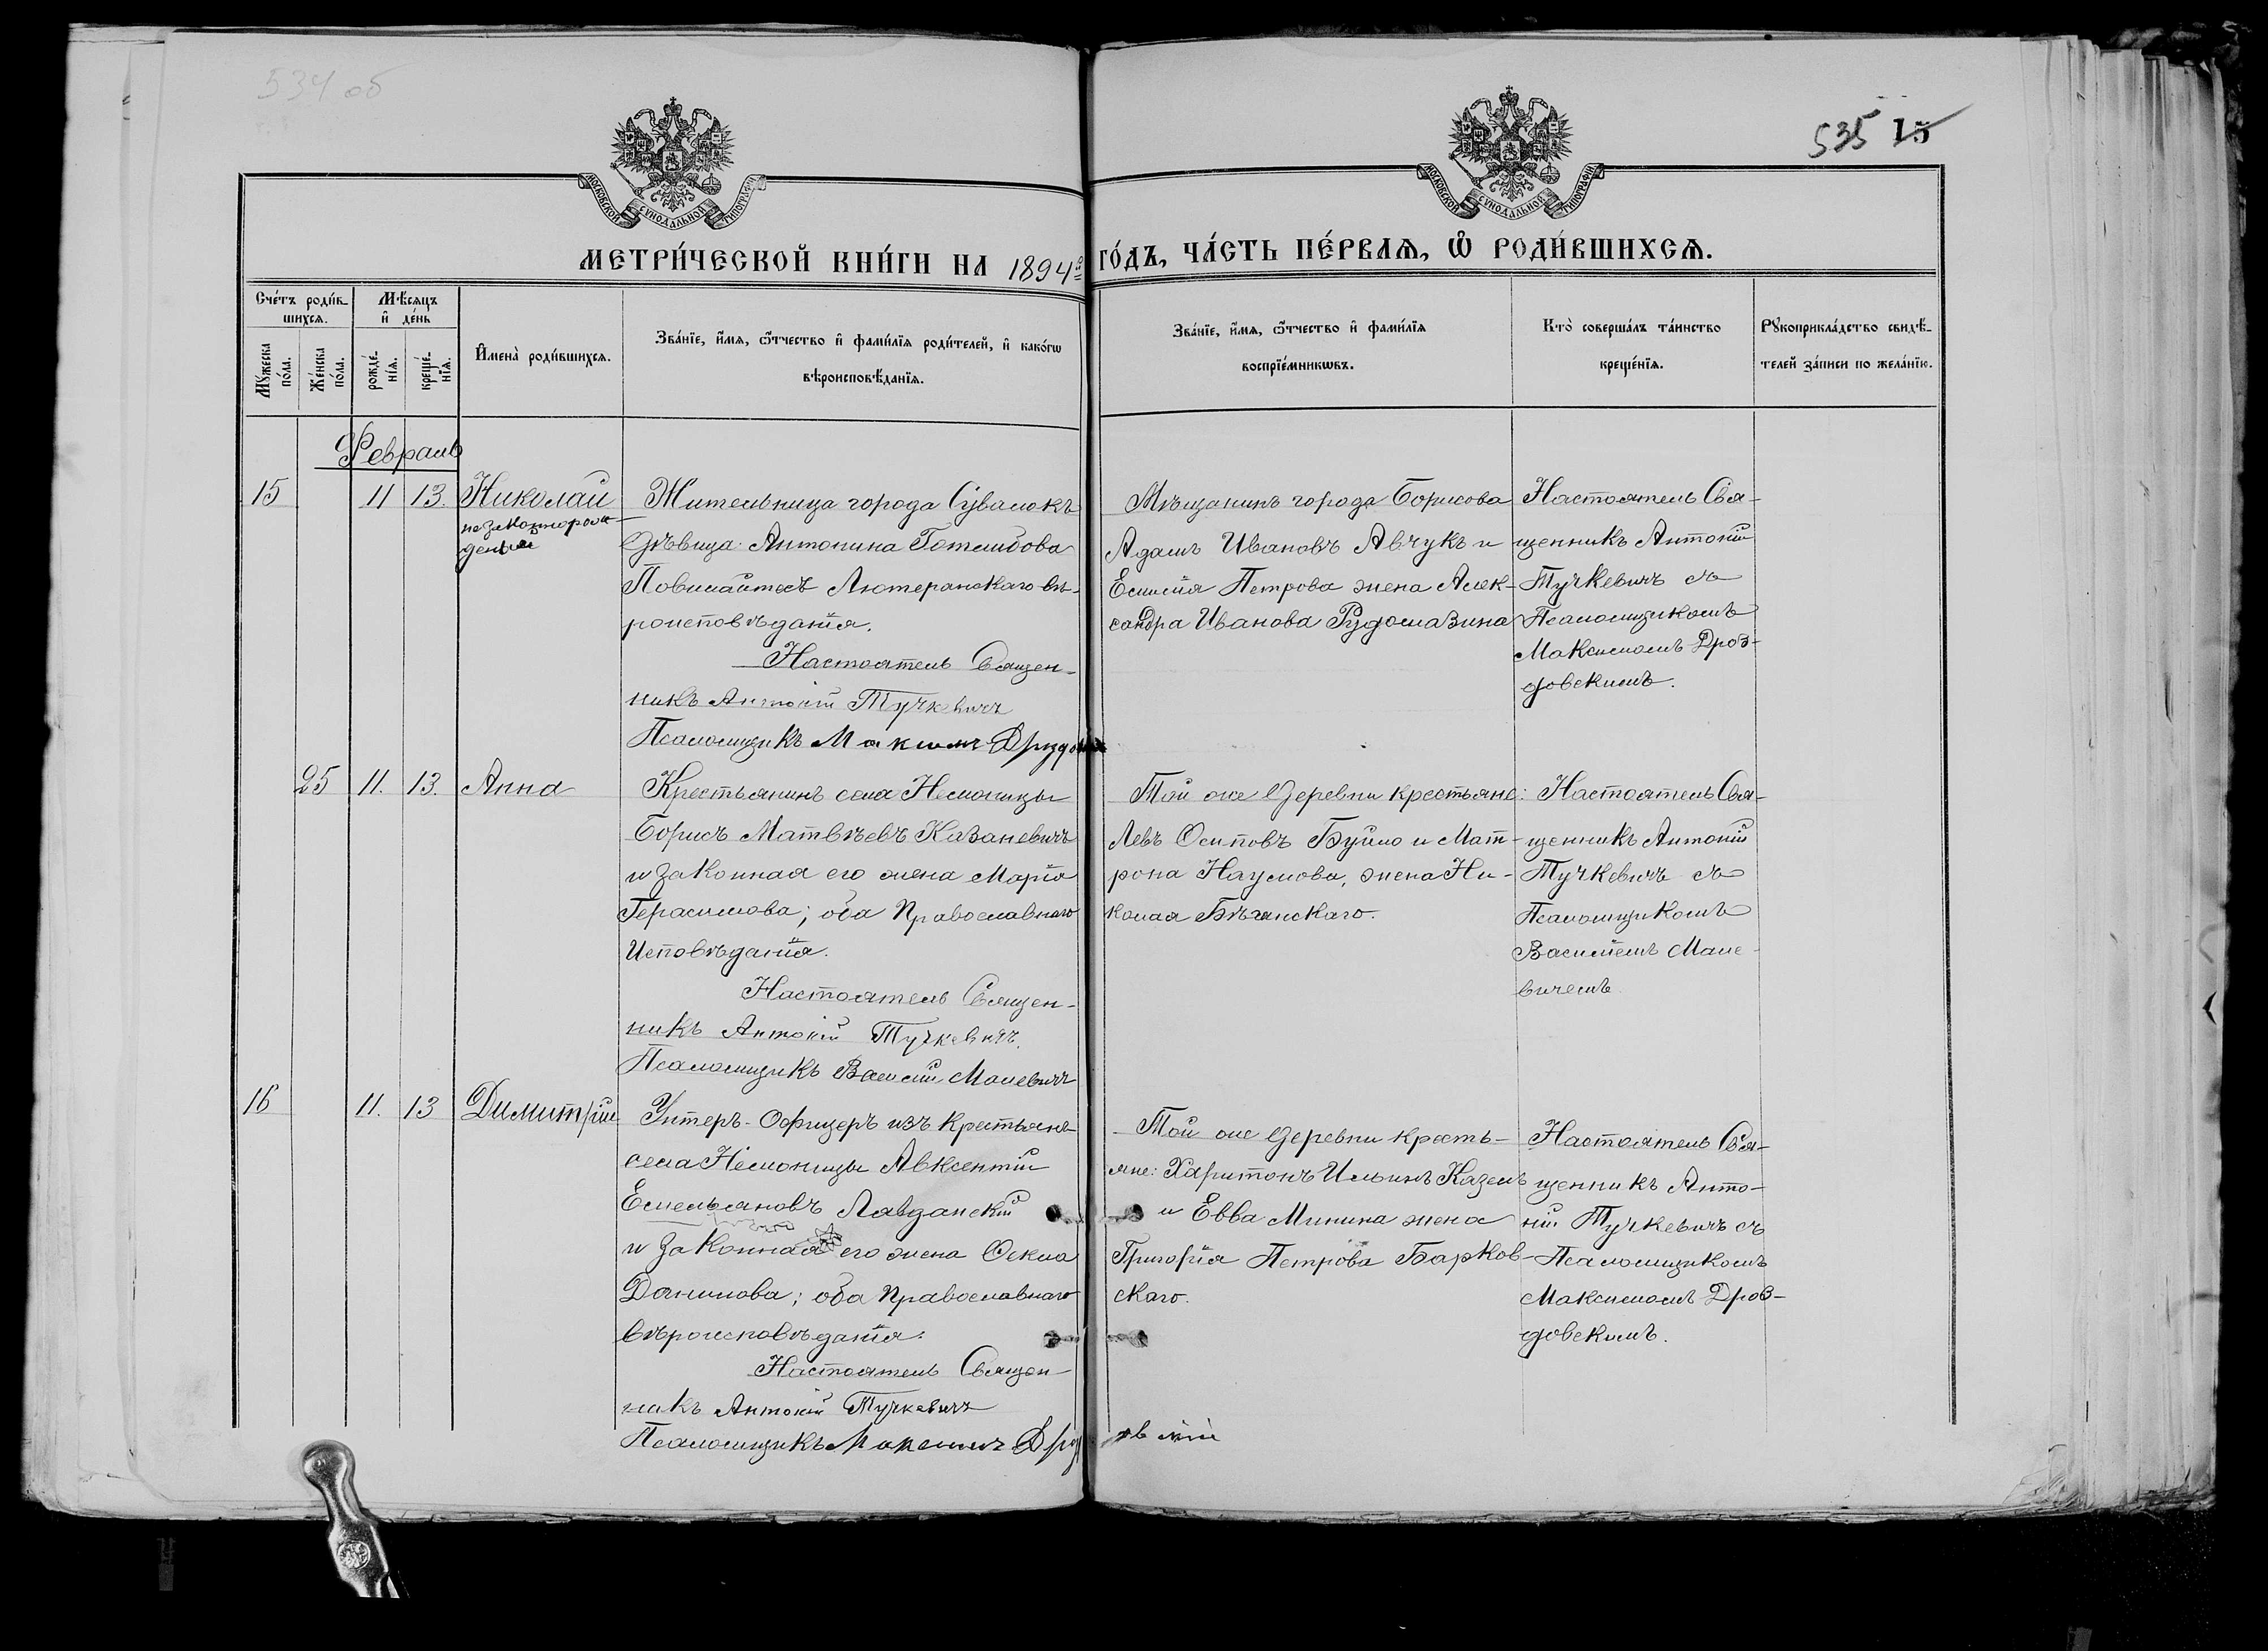 534 об
535 15
МОСКОВСКОЙ СѴНОДАЛЬНОЙ ТИПОГРАФІИ
МОСКОВСКОЙ СѴНОДАЛЬНОЙ ТИПОГРАФІИ
МЕТРИ́ЧЕСКОЙ КНИ́ГИ НА 1894й ГО́ДЪ, ЧА́СТЬ ПЕ́РВАѦ, Ѡ҆ РОДИ́ВШИХСѦ.
Сче́тъ роди́в-
шихсѧ.
Мѣ́сѧцъ
и҆ де́нь
Мꙋ́жеска
по́ла.
Же́нска
по́ла.
рожде́-
нїѧ.
креще́-
нїѧ.
И҆мена̀ роди́вшихсѧ.
Зва́нїе, и҆́мѧ, ѻ҆́тчество и҆ фами́лїѧ роди́телей, и҆ како́гѡ
вѣроисповѣ́данїѧ.
Зва́нїе, и҆́мѧ, ѻ҆́тчество и҆ фами́лїѧ
воспрїе́мникѡвъ.
Кто̀ соверша́лъ та́инство
креще́нїѧ.
Рꙋкоприкла́дство свидѣ́-
телей за́писи по жела́нїю.
Февраль
15 11 13. Николай
незаконнорож-
денный
Жительница города Сувалокъ
дѣвица: Антонина Готлибова
Лютеранскаго вѣ-
роисповѣданія.
Настоятель Священ-
никъ Антоній Тучкевичъ
Псаломщикъ Максимъ
Мѣщанинъ города Борисова
Адамъ Ивановъ Авчукъ и
Емилія Петрова жена Алек-
сандра Иванова Рудомазина
Настоятель Свя-
щенникъ Антоній
Тучкевичъ съ
Псаломщикомъ
Максимомъ Дроз-
довскимъ.
25 11. 13. Анна
Крестьянинъ села Немоницы
Борисъ Матвѣевъ Казаневичъ
и законная его жена Марія
Герасимова; оба Православнаго
Исповѣданія.
Настоятель Священ-
никъ Антоній Тучкевичъ.
Псаломщикъ Василій Малевичъ
Той же деревни крестьяне:
Левъ Осиповъ Буйло и Мат-
рона Наумова, жена Ни-
колая Бѣганскаго.
Настоятель Свя-
щенникъ Антоній
Тучкевичъ съ
Псаломщикомъ
Василіемъ Мале-
вичемъ
16 11. 13 Димитрій
Унтеръ-Офицеръ изъ крестьянъ
села Немоницы Авксентій
Емельяновъ Лавданскій
и законная его жена Фекла
Данилова; оба Православнаго
вѣроисповѣданія.
Настоятель Священ-
никъ Антоній Тучкевичъ
Псаломщикъ Максимъ Дроздовскій
Той же деревни кресть-
яне: Харитонъ Ильинъ Казелъ
и Евва Минина жена
Григорія Петрова Барков-
скаго.
Настоятель Свя-
щенникъ Анто-
ній Тучкевичъ съ
Псаломщикомъ
Максимомъ Дроз-
довскимъ.